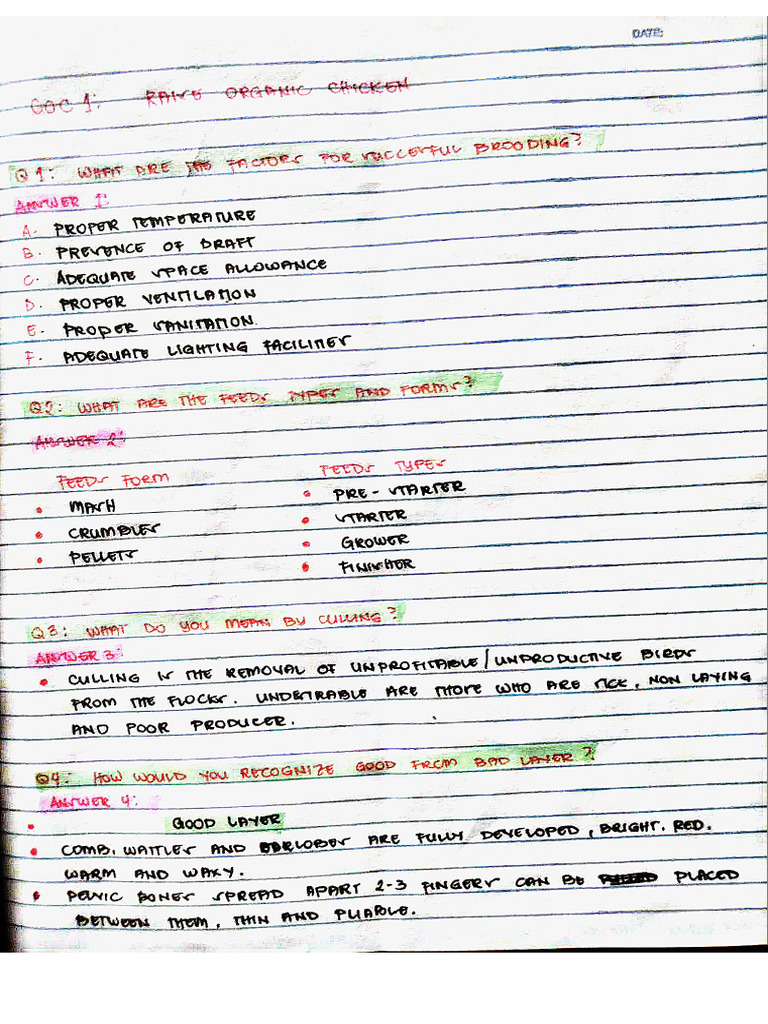 DATE:
COC 1: RAISE ORGANIC CHICKEN
Q1: WHAT ARE THE FACTORS FOR SUCCESFUL BROODING?
ANSWER 1:
A. PROPER TEMPERATURE
B. PRESENCE OF DRAFT
C. ADEQUATE SPACE ALLOWANCE
D. PROPER VENTILATION
E. PROPER SANITATION.
F. ADEQUATE LIGHTING FACILITIES
Q2: WHAT ARE THE FEEDS TYPES AND FORMS?
ANSWER 2:
FEEDS FORM FEEDS TYPES
• MASH • PRE-STARTER
• CRUMBLES • STARTER
• PELLETS • GROWER
• FINISHER
Q3: WHAT DO YOU MEAN BY CULLING?
ANSWER 3:
• CULLING IS THE REMOVAL OF UNPROFITABLE/UNPRODUCTIVE BIRDS
FROM THE FLOCKS. UNDESIRABLE ARE THOSE WHO ARE SICK, NON LAYING
AND POOR PRODUCER.
Q4: HOW WOULD YOU RECOGNIZE GOOD FROM BAD LAYER?
ANSWER 4:
• GOOD LAYER
• COMB, WATTLES AND EARLOBES ARE FULLY DEVELOPED, BRIGHT. RED.
WARM AND WAXY.
• PELVIC BONES SPREAD APART 2-3 FINGERS CAN BE PLACED
BETWEEN THEM, THIN AND PLIABLE.